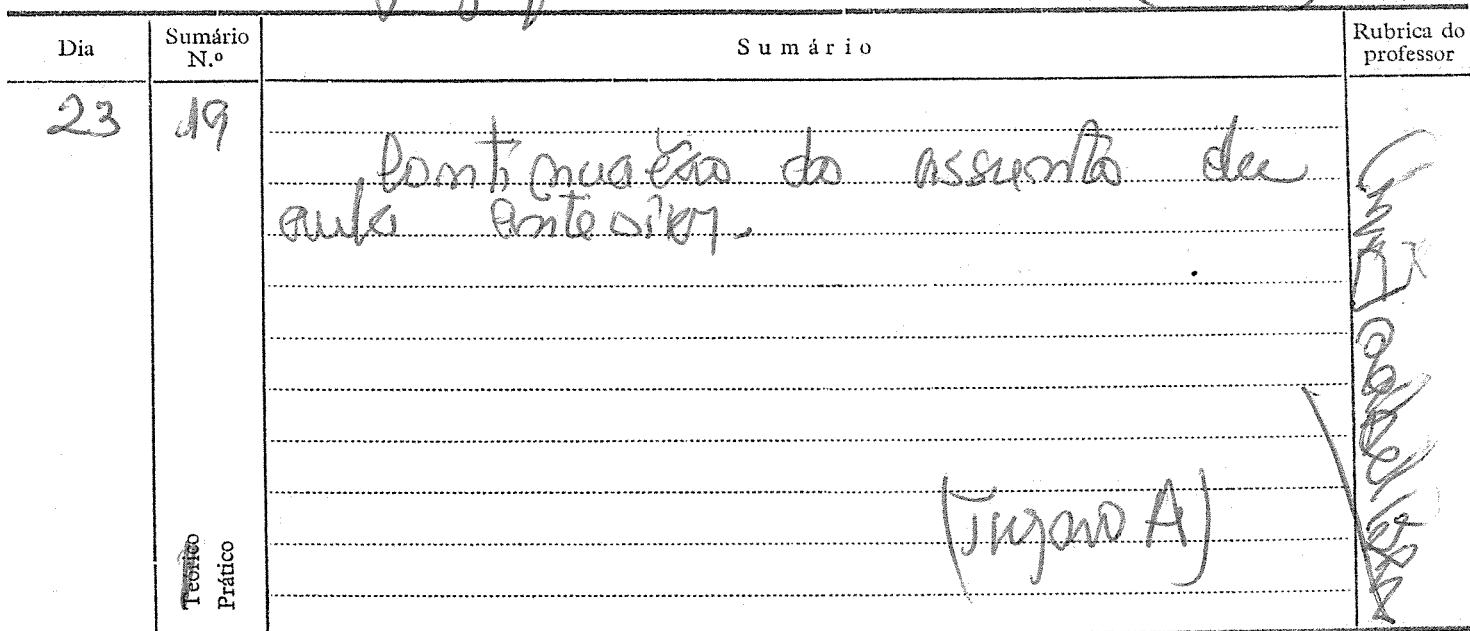 Dia
Sumário N.º
Sumário
Rubrica do professor
23
19
Continuação do assunto da
aula anterior.
(Turma A)
Teórico
Prático